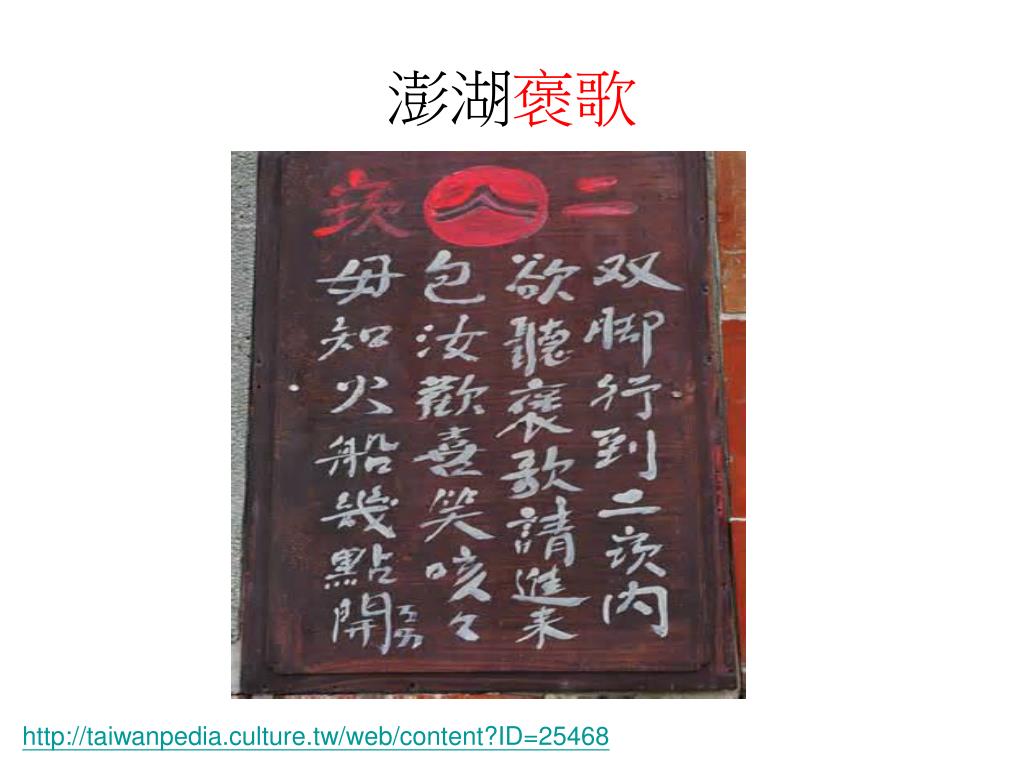 澎湖褒歌
二崁
双脚行到二崁内
欲聽褒歌請進來
包汝歡喜笑咳々
毋知火船幾點開
http://taiwanpedia.culture.tw/web/content?ID=25468